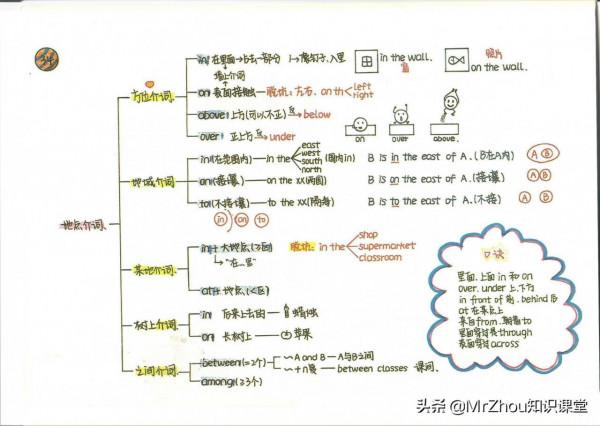 34
地点介词
方位介词
in 在里面→占去一部分
墙上介词
→像钉子、入里
in the wall.
窗
照片
on the wall.
on 表面接触—脱坑:左右. on th left
right
above 上方(可以不正) 反 below
over 正上方 反 under
on
over
above.
地域介词
in (在范围内)—in the
east
west
south
north
(国内in)
B is in the east of A. (B在A内)
A B
on (接壤)—on the XX (两国)
B is on the east of A. (接壤)
A B
to (不接壤)—to the XX (隔海)
B is to the east of A. (不接)
A B
in on to
某地介词
in+大地点(≥区)
"在...里"
脱坑: in the
shop
supermarket
classroom
at+地点(<区)
树上介词
in 后来上去的
on 长树上
苹果
之间介词
between (=2个)
A and B—A与B之间
between classes 课间.
among (≥3个)
口诀
里面.上面 in 和 on
over. under 上.下方
in front of 前. behind 后
at 在某点上
来自 from. 朝着 to
里面穿过是 through
表面穿过 across
头条 @MrZhou知识课堂